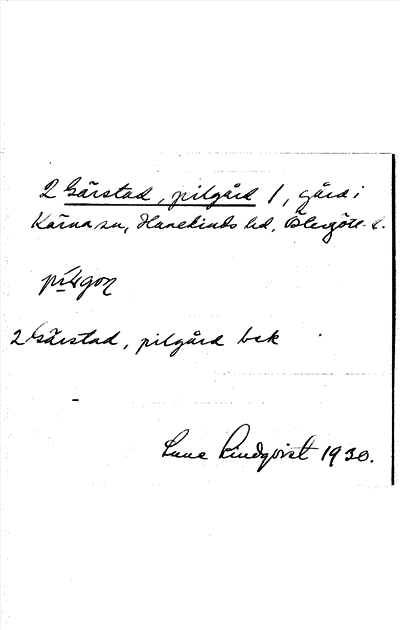 2 Gärstad, pilgård 1, gård i
Kärna sn, Hanekinds hd, Östergötl. l.
pìlgoṇ
2 Gärstad, pilgård bek
Sune Lindqvist 1930.